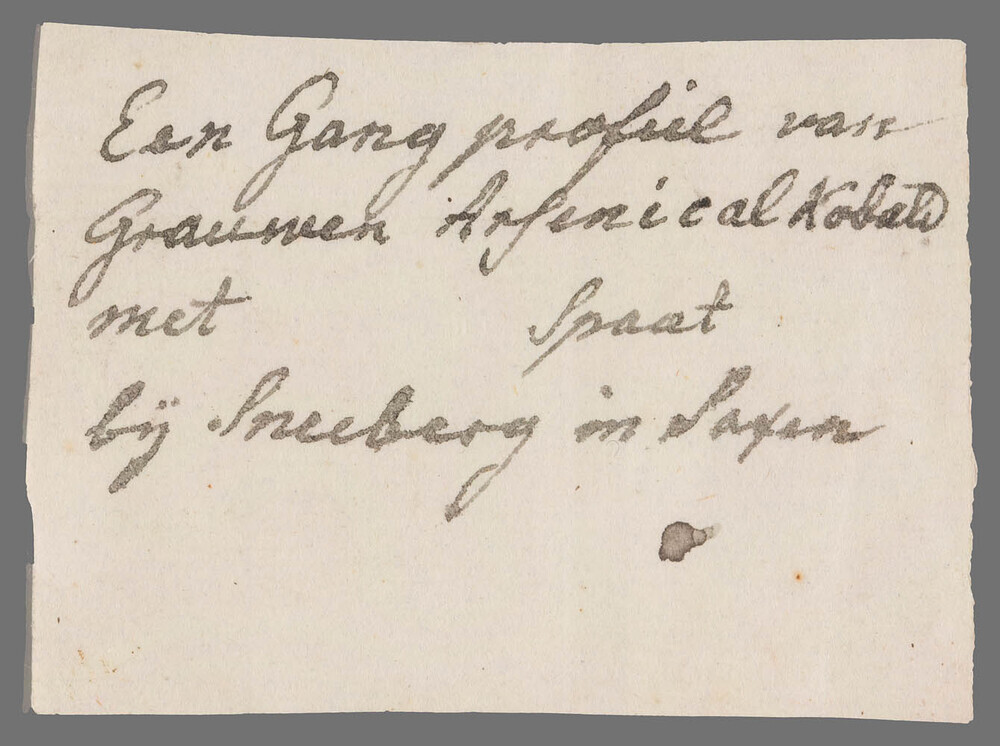 Een Gang profiel van
Grauwen Arsenical Kobald
met Spaat
bÿ Sneeberg in Saxen